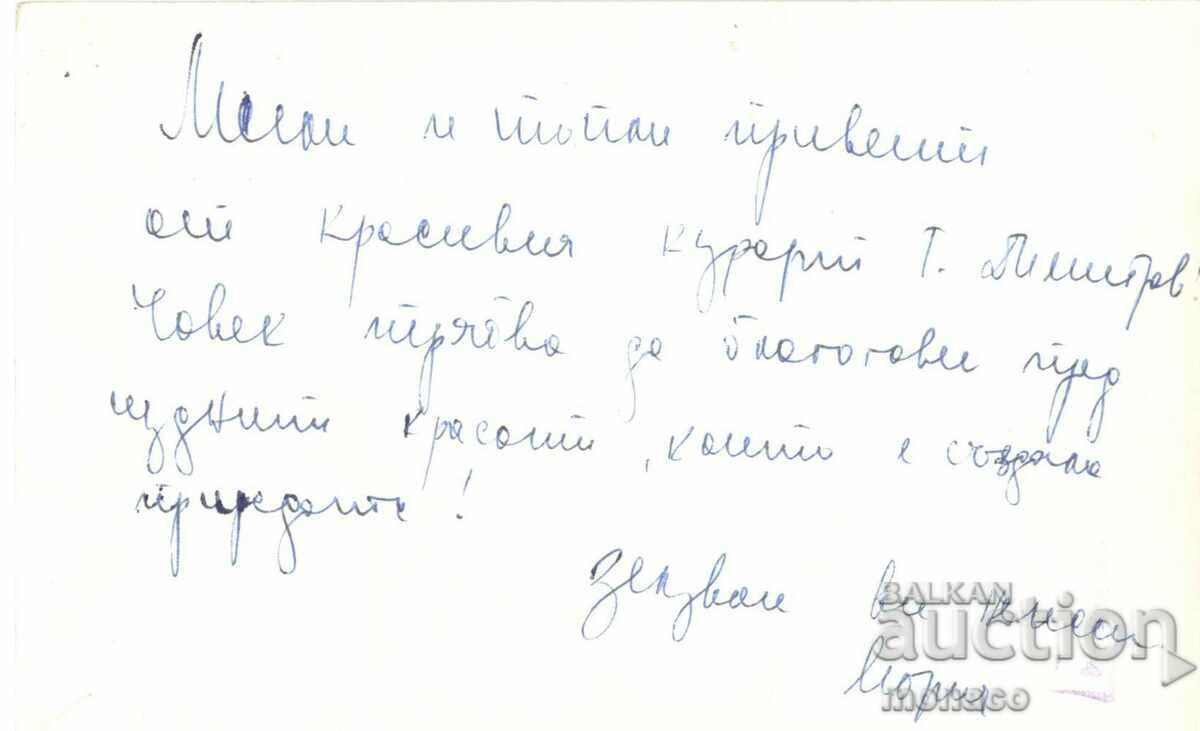 Мили и топли привети
от красивия курорт Г. Димитров!
Човек трябва да благоговее пред
красоти, които е създала
природата!
Ваш
Мария
BALKAN
auction
monaco